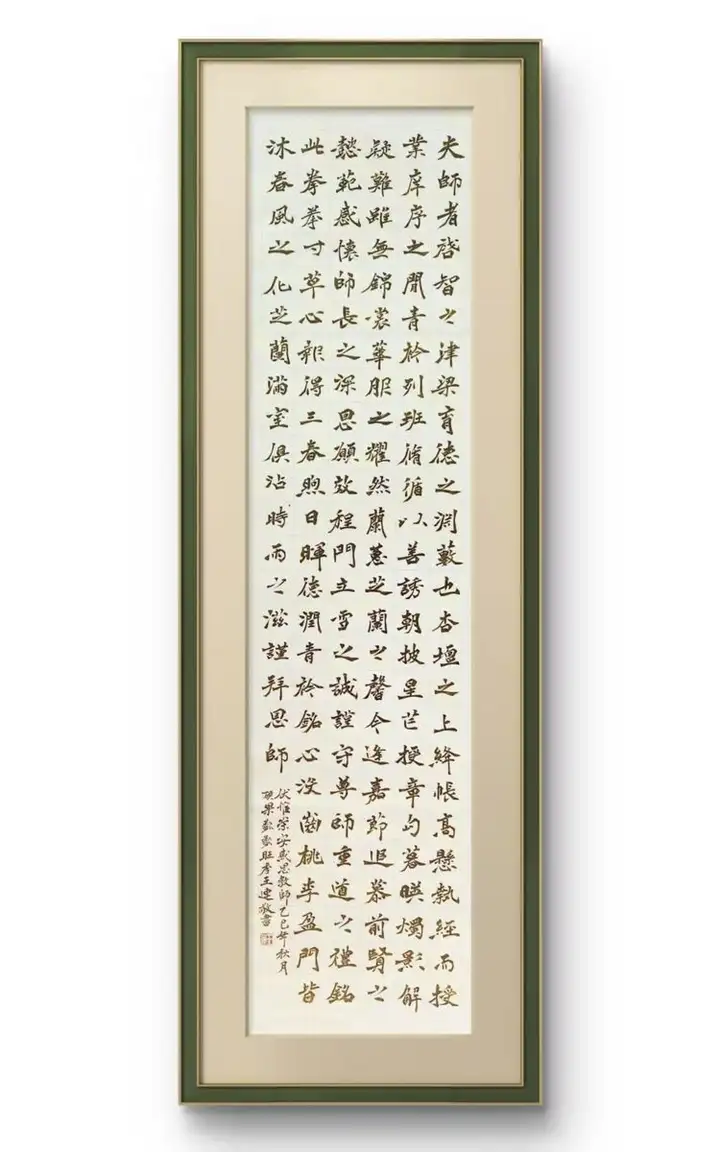 夫師者啓智之津梁育德之淵藪也杏壇之上絳帳高懸執經而授
業庠序之間青衿列班循循以善誘朝披星芒授章句暮暎燭影解
疑難雖無錦裳華服之耀然蘭蕙芝蘭之馨今逢嘉節追慕前賢之
懿範感懷師長之深恩願效程門立雪之誠謹守尊師重道之禮銘
此拳拳寸草心報得三春煦日暉德潤青衿銘心没齒桃李盈門皆
沐春風之化芝蘭滿室俱沾時雨之滋謹拜恩師
伏惟崇安感恩教師乙巳年秋月
碩果纍纍旺季王建敬書